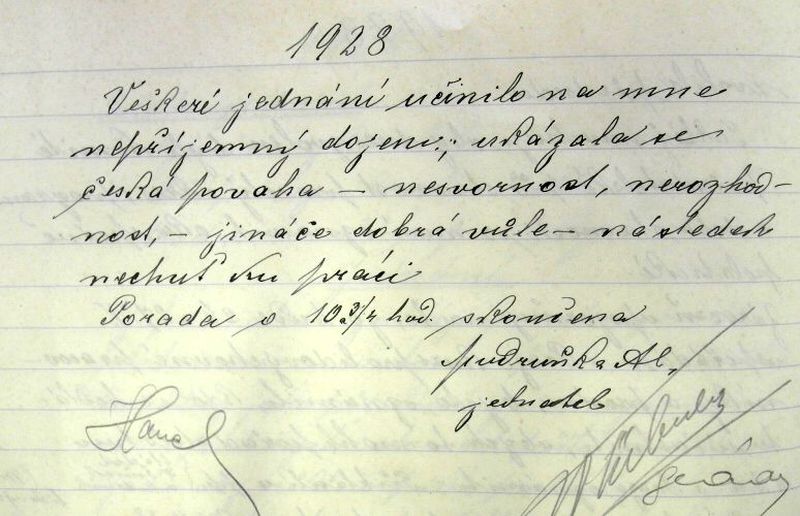 1928
Veškeré jednání učinilo na mne
nepříjemný dojem; ukázala se
česká povaha – nesvornost, nerozhod-
nost, – jináče dobrá vůle – následek
nechuť ku práci
Porada o 10 3/4 hod. skončena
Al.
jednatel